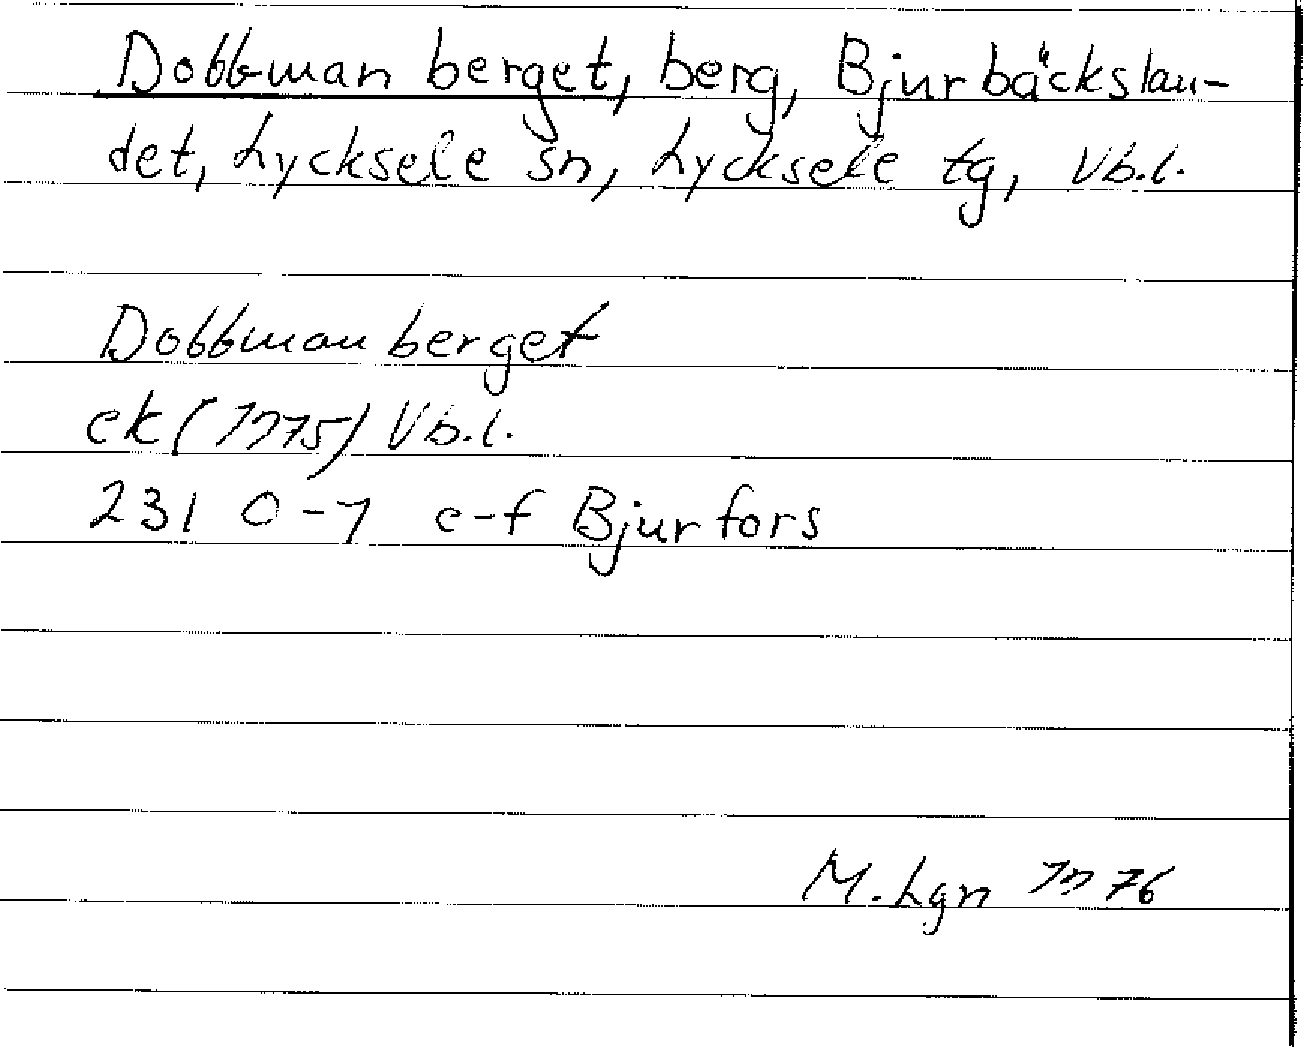 Dobbman berget, berg, Bjurbäckslan-
det, Lycksele sn, Lycksele tg, Vb.l.
Dobbmanberget
ek (1975) Vb.l.
231 0-1 e-f Bjurfors
M. Lgn 1976